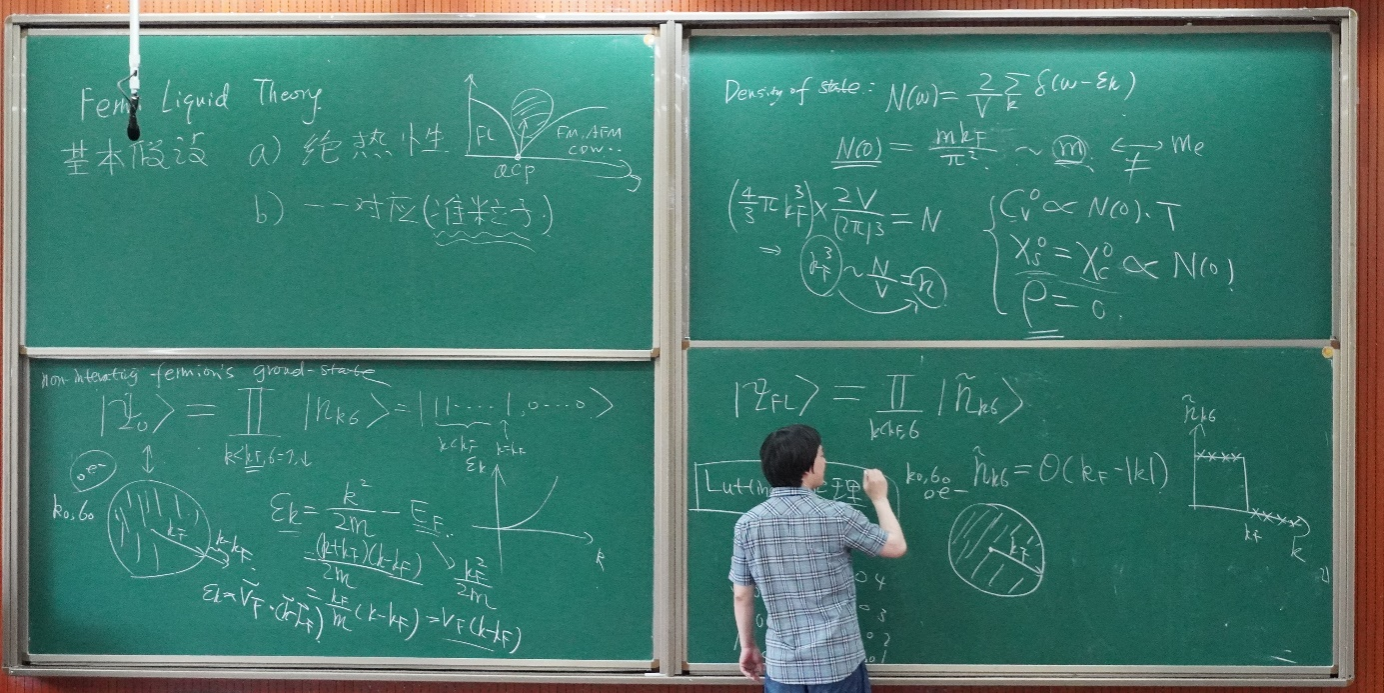 Fermi Liquid Theory
基本假设 a) 绝热性
b) 一一对应(准粒子)
FL
FM, AFM
CDW..
QCP
Density of state: N(ω) = 2/V Σ_k δ(ω-εk)
N(0) = mkF/π² ~ m ≠ me
(4/3 πkF³) × 2V/(2π)³ = N
⇒ kF³ ~ N/V = n
Cv⁰ ∝ N(0)·T
χs⁰ = χc⁰ ∝ N(0)
ρ = 0
non-interating fermion's ground-state
|Ψ0> = Π |nkσ> = |11····1,0····0>
k<kF,σ=↑,↓
k<kF k=kF
oe-
k0,σ0
kF
k-kF
εk = k²/2m - EF
= (k+kF)(k-kF)/2m
kF²/2m
= kF/m (k-kF) = VF(k-kF)
εk≈VF·(k-kF)
εk
k
|ΨFL> = Π |ñkσ>
k<kF,σ
理
k0,σ0
oe-
ñkσ = Θ(kF-|k|)
kF
ñkσ
kF
k